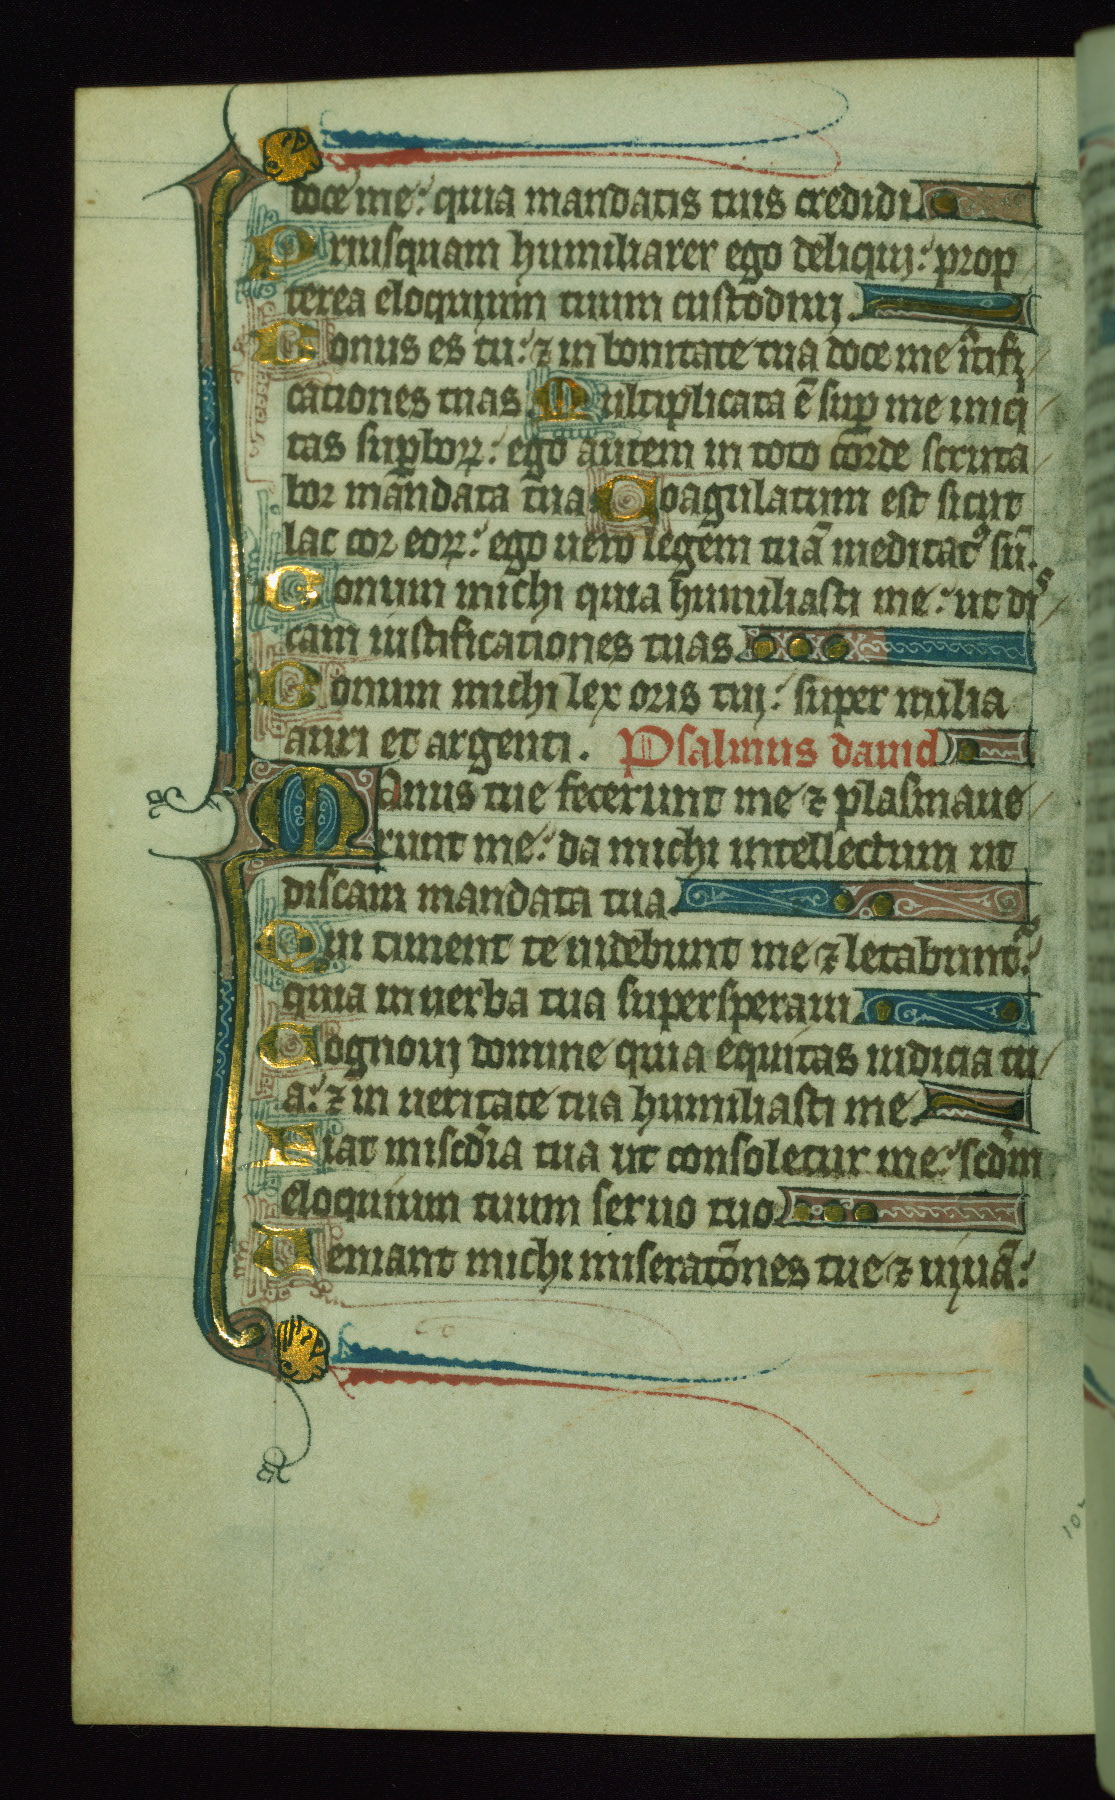 doce me: quia mandatis tuis credidi
Priusquam humiliarer ego deliqui: prop
terea eloquium tuum custodiui.
Bonus es tu: ⁊ in bonitate tua doce me iᷤtifi
cationes tuas Multiplicata ē suꝑ me iniq
tas suꝑboꝝ: ego autem in toto corde scruta
bor mandata tua Coagulatum est sicut
lac cor eoꝝ: ego uero legem tuā meditatꝰ sū.
Bonum michi quia humiliasti me: ut dis
cam iustificationes tuas
Bonum michi lex oris tui: super milia
auri et argenti. Psalmus dauid
Manus tue fecerunt me ⁊ plasmaue
runt me: da michi intellectum ut
discam mandata tua
Qui timent te uidebunt me ⁊ letabunt᷑:
quia in uerba tua supersperaui
Cognoui domine quia equitas iudicia tu
a: ⁊ in ueritate tua humiliasti me
Fiat miscdīa tua ut consoletur me: scdm̄
eloquium tuum seruo tuo
Ueniant michi miseratōnes tue ⁊ uiuā:
102